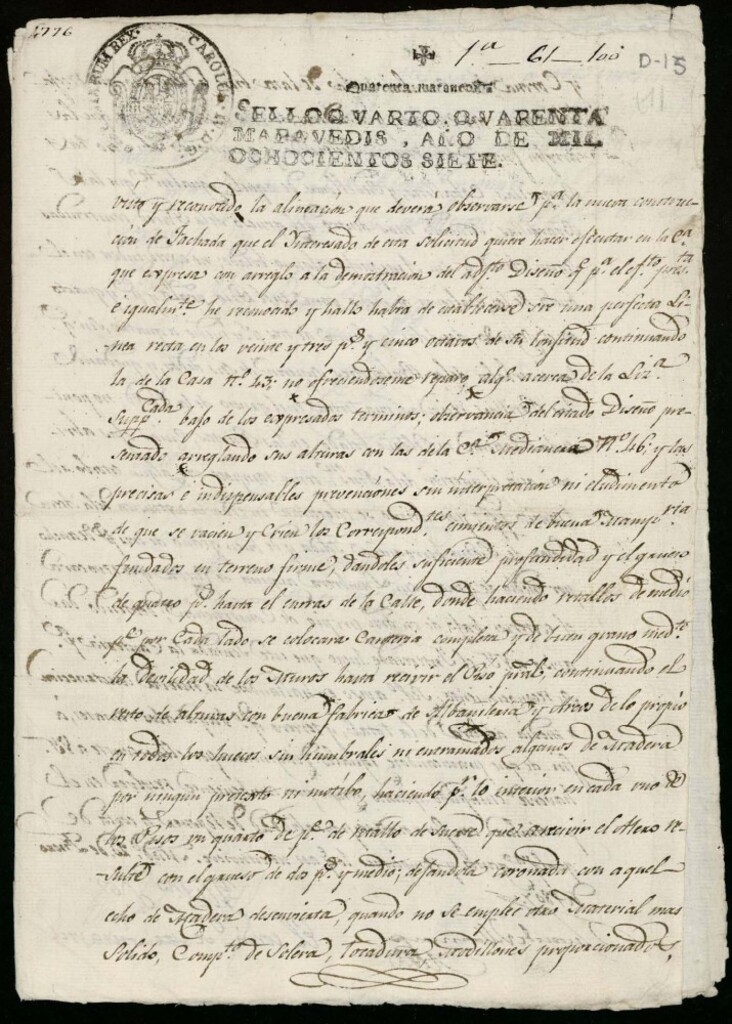 1776
1ª 61 100
D-15
CAROLUS
ARUM REX
Quarenta maravedis
SELLO QVARTO, QVARENTA
MARAVEDIS, AÑO DE MIL
OCHOCIENTOS SIETE.
visto y reconocido la alineacion que deverá observarse pª la nueva construc-
cion de Fachada que el Ynteresado de esta solicitud quiere hacer ejecutar en la Cª
que expresa con arreglo a la demostracion del adjto Diseño qe pª el efto presta
e igualmte he reconocido y hallo habra de establecerse sre una perfecta Li-
nea recta en los veinte y tres ps y cinco octavos de su lonjitud continuando
la de la Casa nº 43; no ofreciendoseme reparo algº acerca de la Lizª
Suppcada bajo de los expresados terminos; observancia del citado Diseño pre-
sentado arreglando sus alturas con las de la Cª Medianera Nº 46, y las
precisas e indispensables prevenciones sin interpretacion ni eludimento
de que se vacien y Crien los Correspondtes cimientos de buena Mampria
fundados en terreno firme, dandoles suficiente profundidad y el grueso
de quatro ps hasta el enrras de la Calle, donde haciendo retallos de medio
pe por Cada lado se colocara Canteria completa y de buen grano medte
la devilidad de los Muros hasta recivir el Piso pral, continuando el
resto de alturas con buena fabrica de Albañileria y otras de lo propio
en todos los huecos sin humbrales ni entramados algunos de Madera
por ningun pretexto ni motibo, haciendo pr lo interior en cada uno de
los Pisos un quarto de pe de retallo de suerte que a recivir el Alero
suba con el grueso de dos ps y medio; dejandola coronada con aquel
echo de Madera descuvierta, quando no se emplee otro Material mas
solido, Compto de Solera, tocadura Modillones proporcionados,